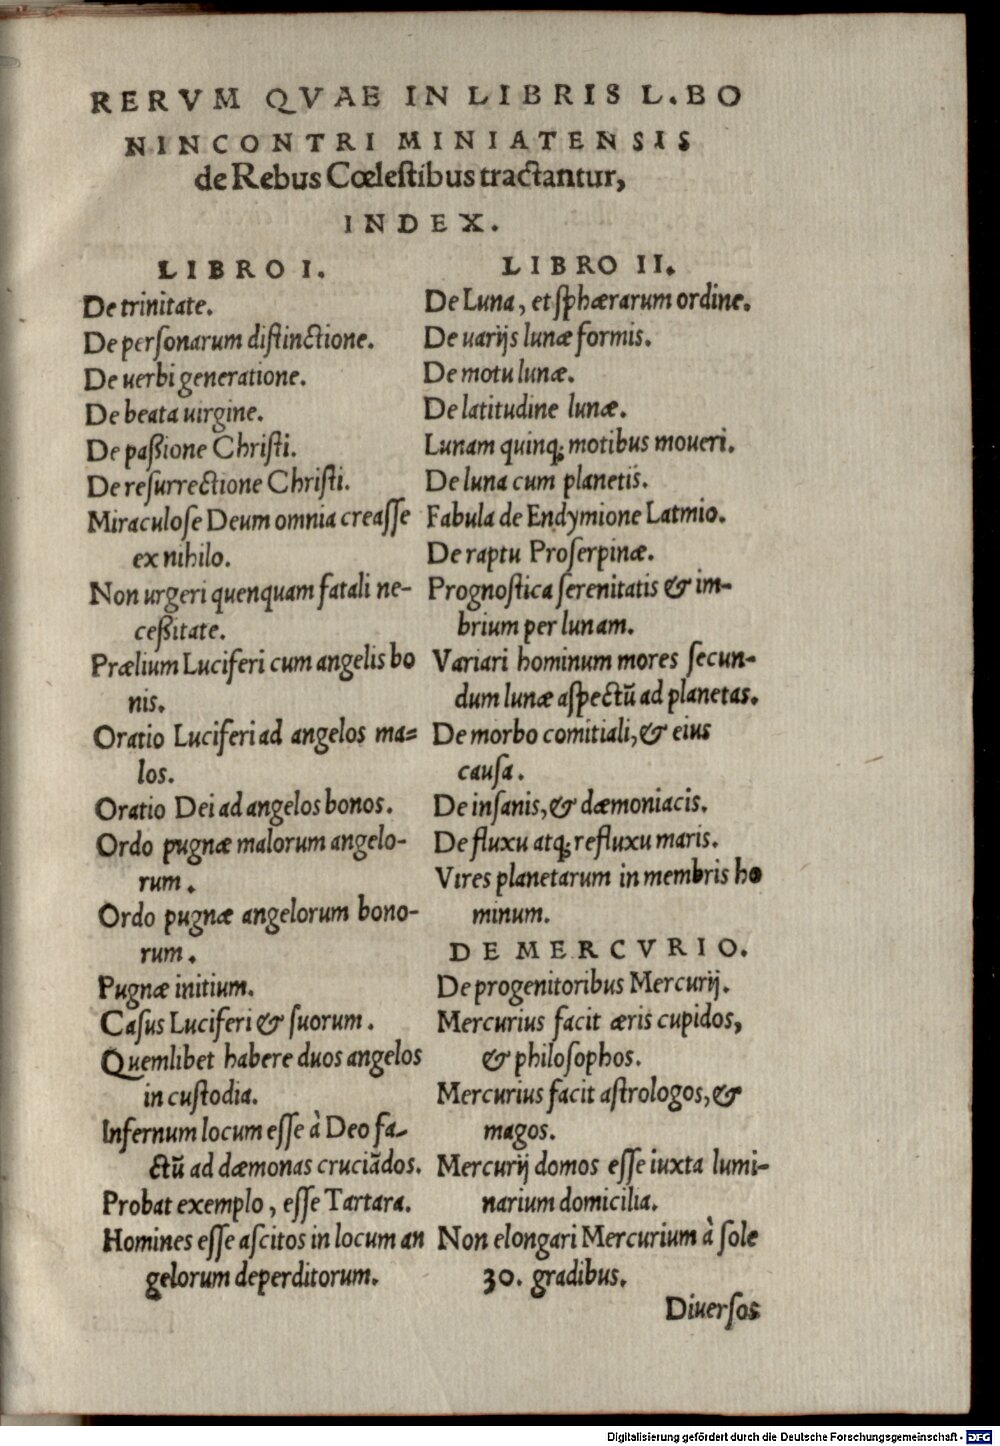 RERVM QVAE IN LIBRIS L. BO
NINCONTRI MINIATENSIS
de Rebus Cœlestibus tractantur,
INDEX.
LIBRO I.
De trinitate.
De perſonarum diſtinctione.
De uerbi generatione.
De beata uirgine.
De paßione Chriſti.
De reſurrectione Chriſti.
Miraculoſe Deum omnia creaſſe
ex nihilo.
Non urgeri quenquam fatali ne-
ceßitate.
Prælium Luciferi cum angelis bo
nis.
Oratio Luciferi ad angelos ma=
los.
Oratio Dei ad angelos bonos.
Ordo pugnæ malorum angelo-
rum.
Ordo pugnæ angelorum bono-
rum.
Pugnæ initium.
Caſus Luciferi & ſuorum.
Quemlibet habere duos angelos
in cuſtodia.
Infernum locum eſſe à Deo fa-
ctũ ad dæmonas cruciãdos.
Probat exemplo, eſſe Tartara.
Homines eſſe aſcitos in locum an
gelorum deperditorum.
LIBRO II.
De Luna, et ſphærarum ordine.
De uarijs lunæ formis.
De motu lunæ.
De latitudine lunæ.
Lunam quinq; motibus moueri.
De luna cum planetis.
Fabula de Endymione Latmio.
De raptu Proſerpinæ.
Prognoſtica ſerenitatis & im-
brium per lunam.
Variari hominum mores ſecun-
dum lunæ aſpectũ ad planetas.
De morbo comitiali, & eius
cauſa.
De inſanis, & dæmoniacis.
De fluxu atq; refluxu maris.
Vires planetarum in membris ho
minum.
DE MERCVRIO.
De progenitoribus Mercurij.
Mercurius facit æris cupidos,
& philoſophos.
Mercurius facit aſtrologos, &
magos.
Mercurij domos eſſe iuxta lumi-
narium domicilia.
Non elongari Mercurium à ſole
30. gradibus.
Diuerſos
Digitalisierung gefördert durch die Deutsche Forschungsgemeinschaft - DFG